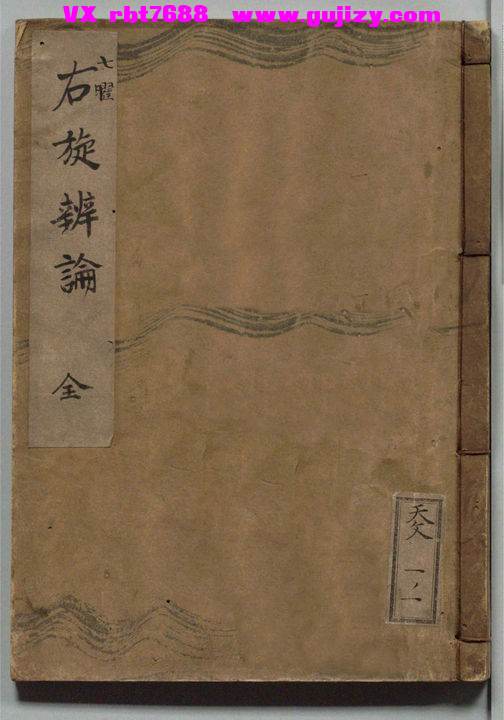 VX_rbt7688 www.gujizy.com
七曜
右旋辨論 全
天文
一ノ一